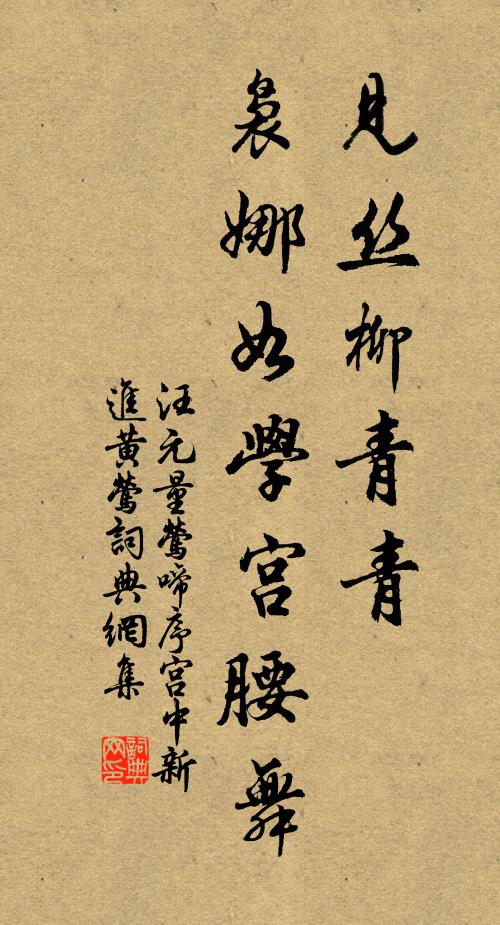 見丝柳青青
裊娜如學宮腰舞
汪元量鶯啼序宮中新
進黃鶯詞典網集
詞典
网印